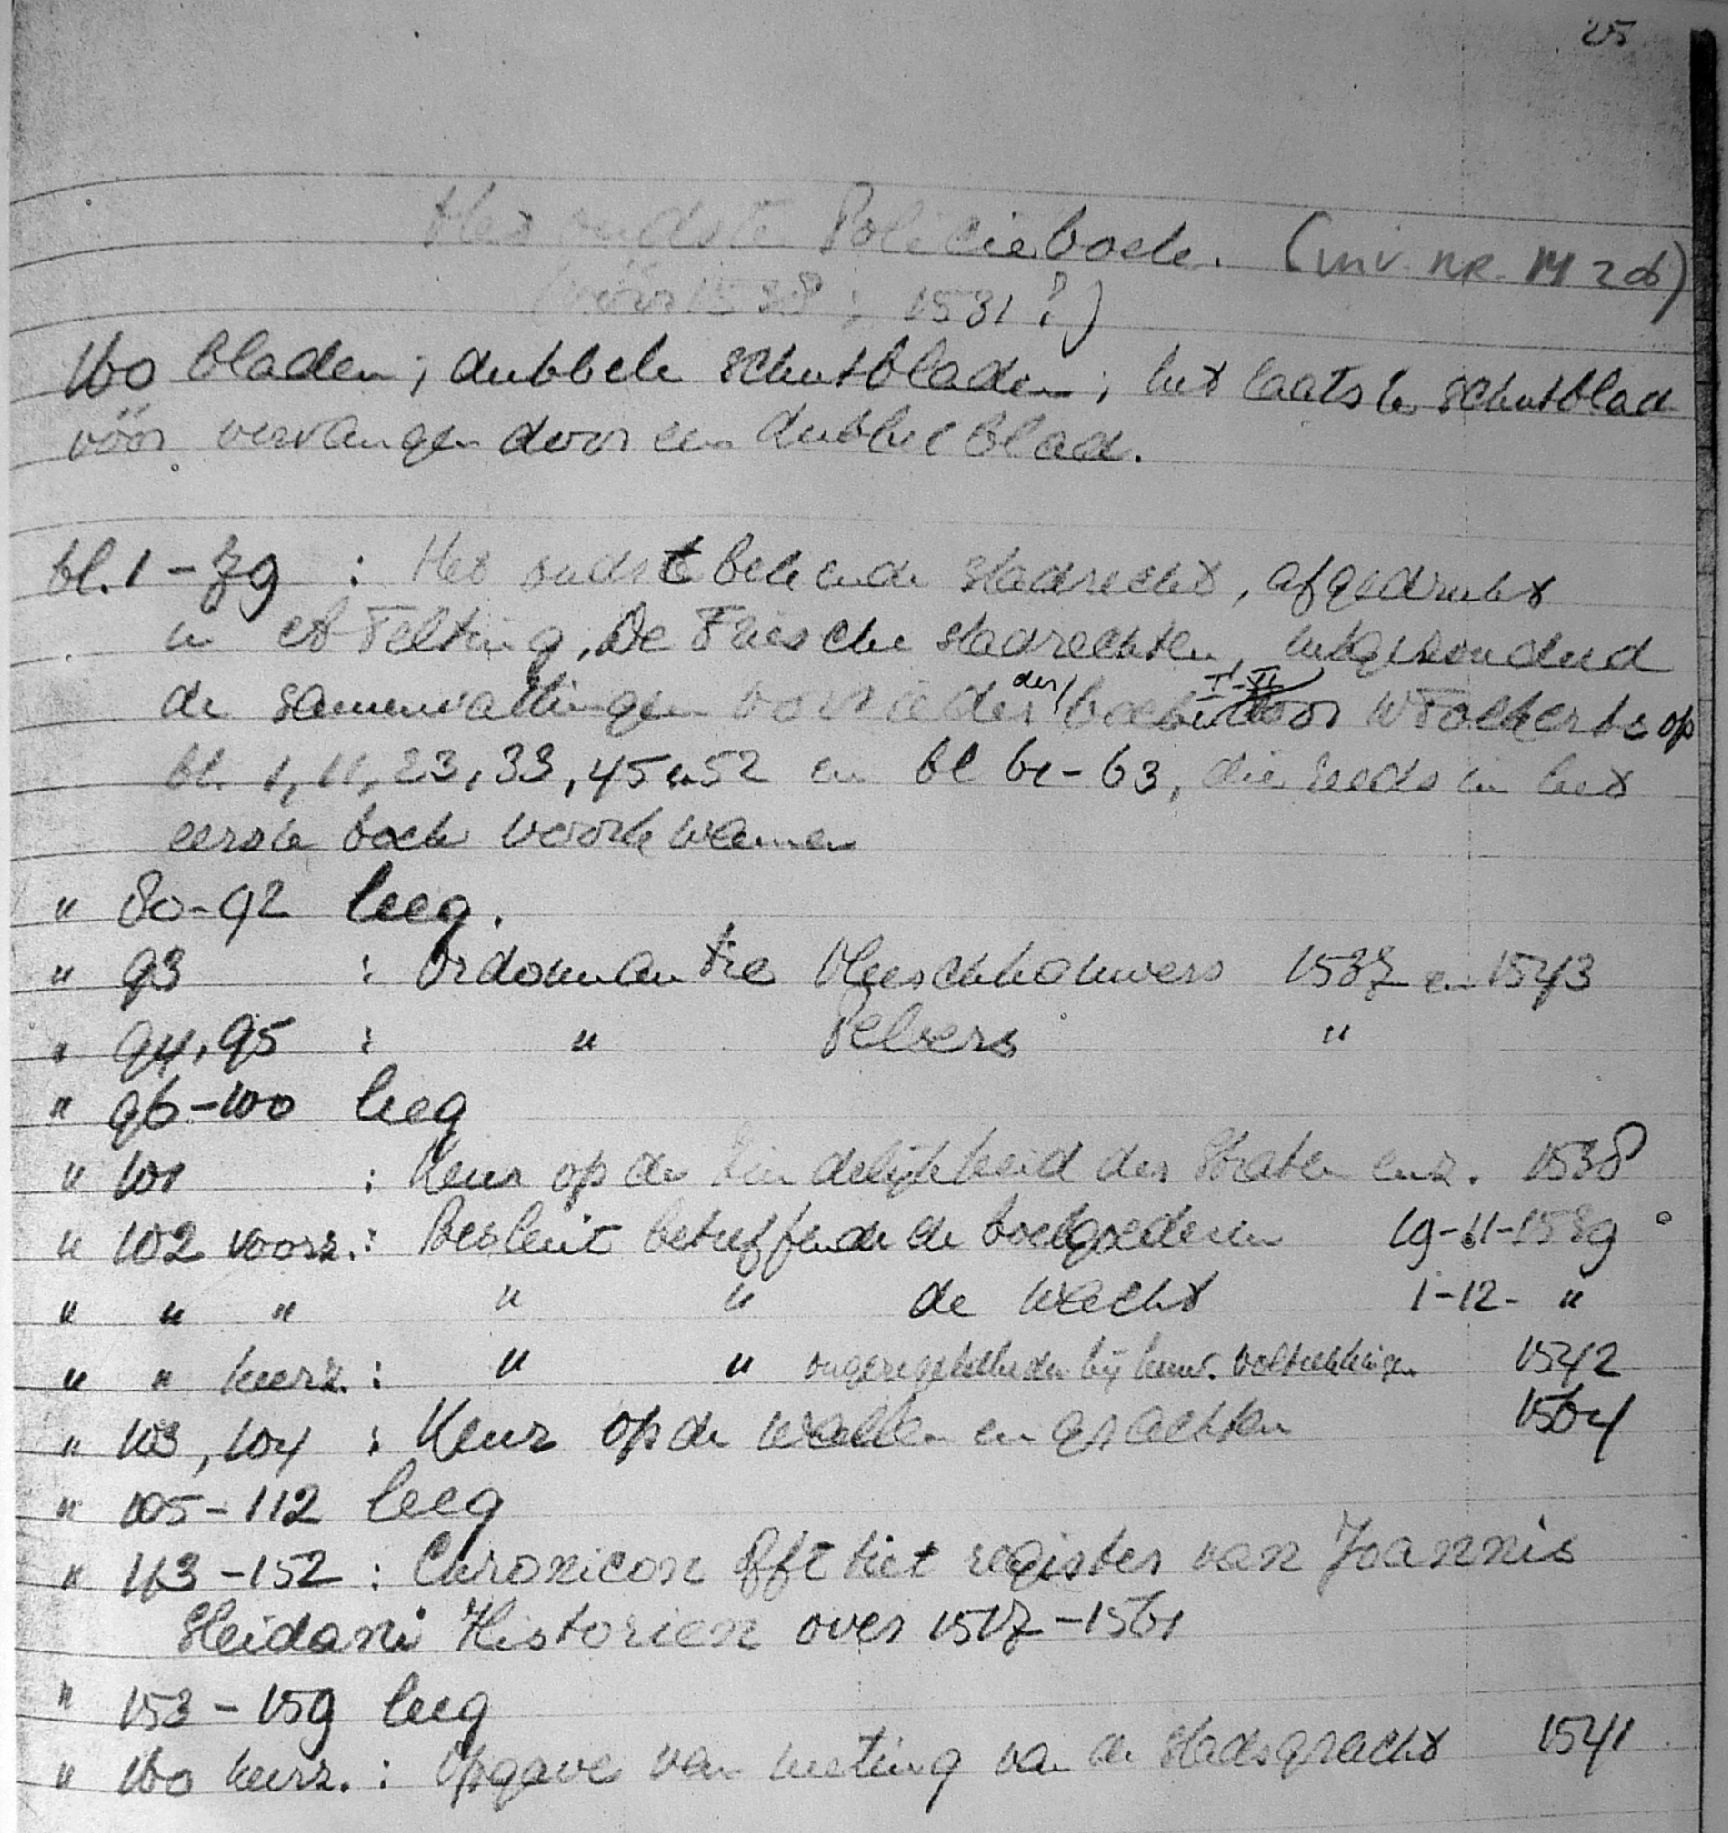 25
Het oudste Policieboek. (inv. nr. M 26)
(vóór 1538; 1531?)
160 bladen; dubbele schutbladen; het laatste schutblad
vóór vervangen door een dubbel blad.
bl. 1-79 : Het oudst bekende stadrecht, afgedrukt
in A Telting, De Friesche stadrechten, uitgezonderd
de samenvattingen voor ieder der boeken I-VI door W Folkerts op
bl. 1, 11, 23, 33, 45 en 52 en bl 61-63, die reeds in het
eerste boek voorkwamen
" 80-92 leeg.
" 93 : Ordonnantie Vleeschhouwers 1537 en 1543
" 94, 95 : " Pelsers "
" 96-100 leeg
" 101 : Keur op de zindelijkheid der straten enz. 1538
" 102 voorz. : Besluit betreffende de boelgoederen 19-11-1539
" " " " " de wacht 1-12- "
" " keerz. : " " ongeregeldheden bij huw. voltrekkingen 1542
" 103, 104 : Keur op de wallen en grachten 1564
" 105-112 leeg
" 113-152 : Chronicon offt tiet register van Joannis
Sleidani Historien over 1517-1561
" 153-159 leeg
" 160 keerz. : Opgave van meting van de stadsgracht 1541